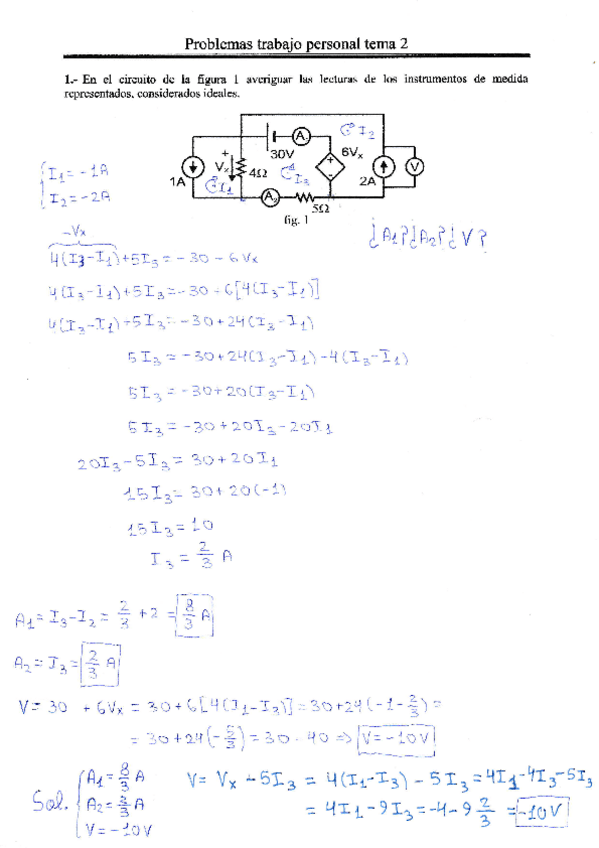 Problemas trabajo personal tema 2
1.- En el circuito de la figura 1 averiguar las lecturas de los instrumentos de medida
representados, considerados ideales.
A₁
I₂
30V
6Vₓ
+
Vₓ
4Ω
+
-
V
1A
I₁
I₃
2A
A₂
5Ω
fig. 1
I₁ = -1A
I₂ = -2A
¿A₁? ¿A₂? ¿V?
-Vx
4(I₃-I₁)+5I₃ = -30 - 6Vx
4(I₃-I₁)+5I₃ = -30 + 6[4(I₃-I₁)]
4(I₃-I₁)+5I₃ = -30 + 24(I₃-I₁)
5I₃ = -30+24(I₃-I₁)-4(I₃-I₁)
5I₃ = -30+20(I₃-I₁)
5I₃ = -30+20I₃-20I₁
20I₃-5I₃ = 30+20I₁
15I₃ = 30+20(-1)
15I₃ = 10
I₃ = 2/3 A
A₁ = I₃-I₂ = 2/3 + 2 = 8/3 A
A₂ = I₃ = 2/3 A
V = 30 + 6Vx = 30+6[4(I₁-I₃)] = 30+24(-1-2/3) =
= 30+24(-5/3) = 30-40 ⇒ V = -10V
Sol. { A₁ = 8/3 A
A₂ = 2/3 A
V = -10V
V = Vx - 5I₃ = 4(I₁-I₃) - 5I₃ = 4I₁-4I₃-5I₃
= 4I₁-9I₃ = -4-9 2/3 = -10V